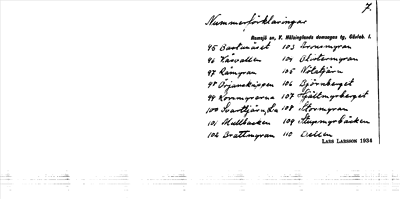 7.
Nummerförklaringar
Ramsjö sn, V. Hälsinglands domsagas tg, Gävleb. l.
95 Bastunäset 103 Arnomyran
96 Kåsvallen 104 Olstermyran
97 Råmyran 105 Nolatjärn
98 Örjanskäppen 106 Björnberget
99 Kornmyrarna 107 Hjältmyrberget
100 Svarttjärn, 108 Stormyran
101 Mullbacken 109 Stupmyrbäcken
102 Brattmyran 110
LARS LARSSON 1934